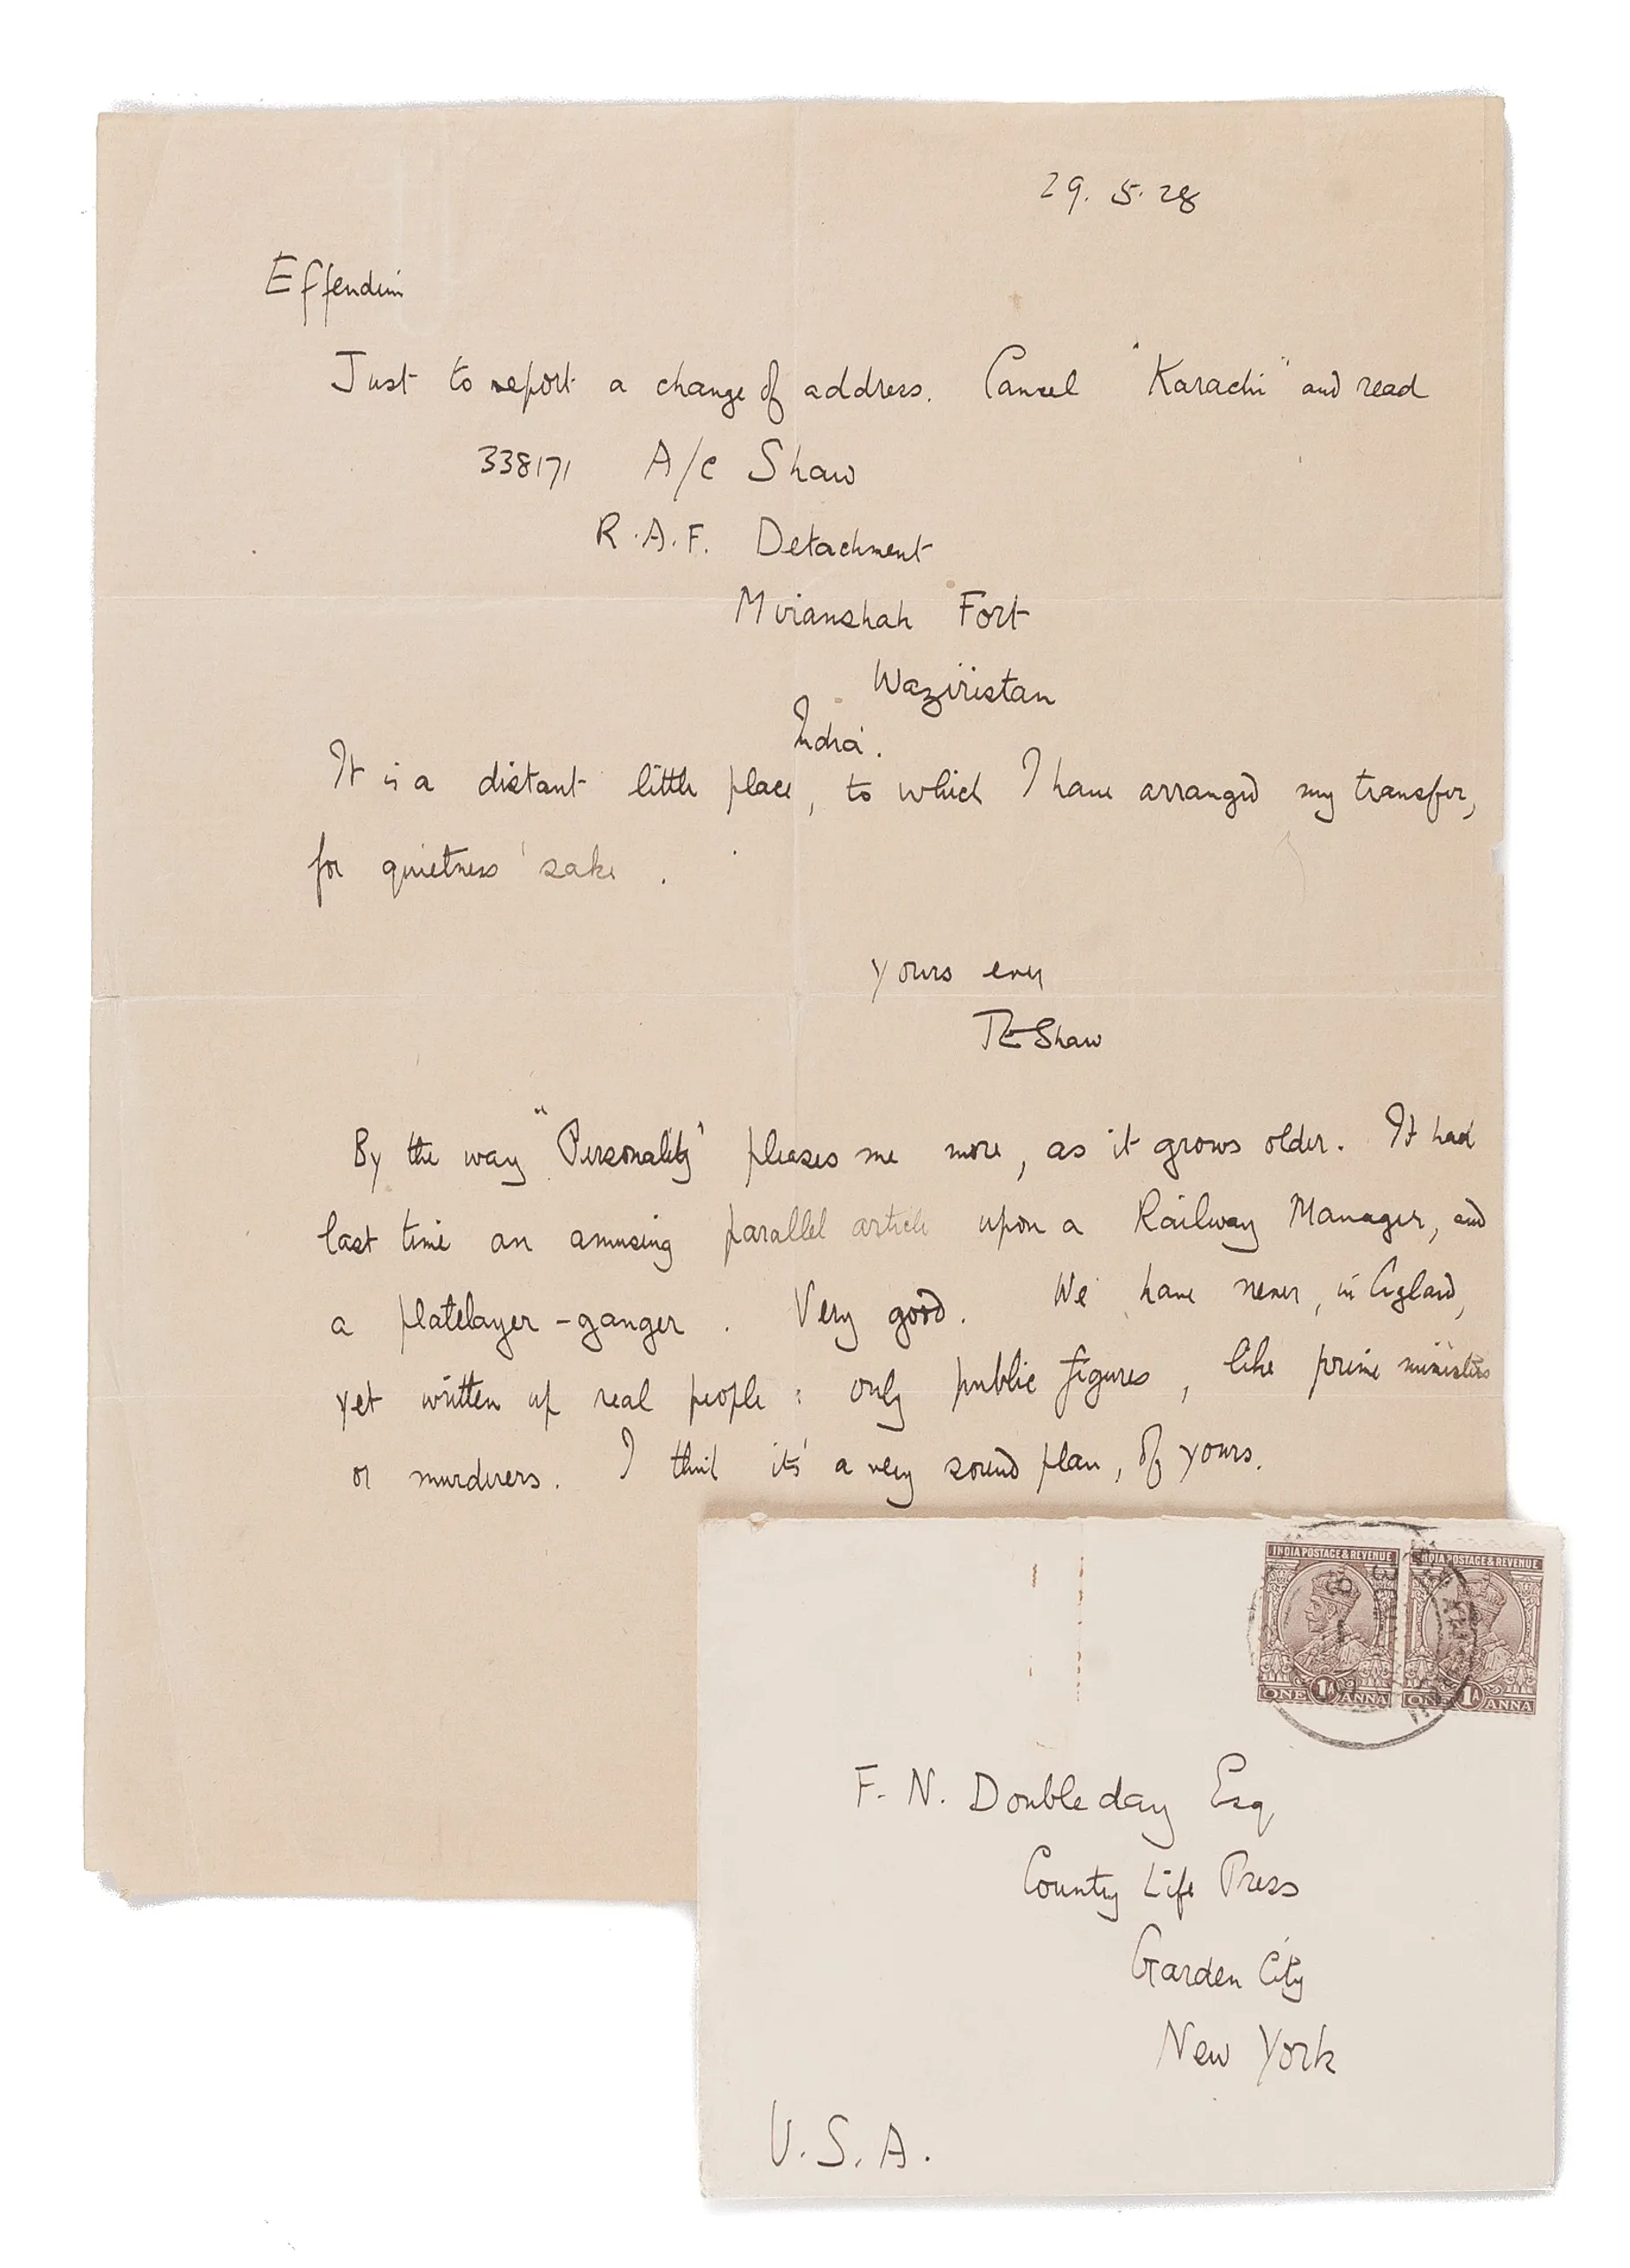 29. 5. 28
Effendim
Just to report a change of address. Cancel "Karachi" and read
338171 A/C Shaw
R.A.F. Detachment
Miranshah Fort
Waziristan
India.
It is a distant little place, to which I have arranged my transfer,
for quietness' sake.
Yours ever
TE Shaw
By the way "Personality" pleases me more, as it grows older. It had
last time an amusing parallel article upon a Railway Manager, and
a platelayer-ganger. Very good. We have never, in England,
yet written up real people: only public figures, like prime ministers
or murderers. I think it's a very sound plan, of yours.
INDIA POSTAGE & REVENUE INDIA POSTAGE & REVENUE
ONE 1A ANNA ONE 1A ANNA
F. N. Doubleday Esq
Country Life Press
Garden City
New York
U.S.A.